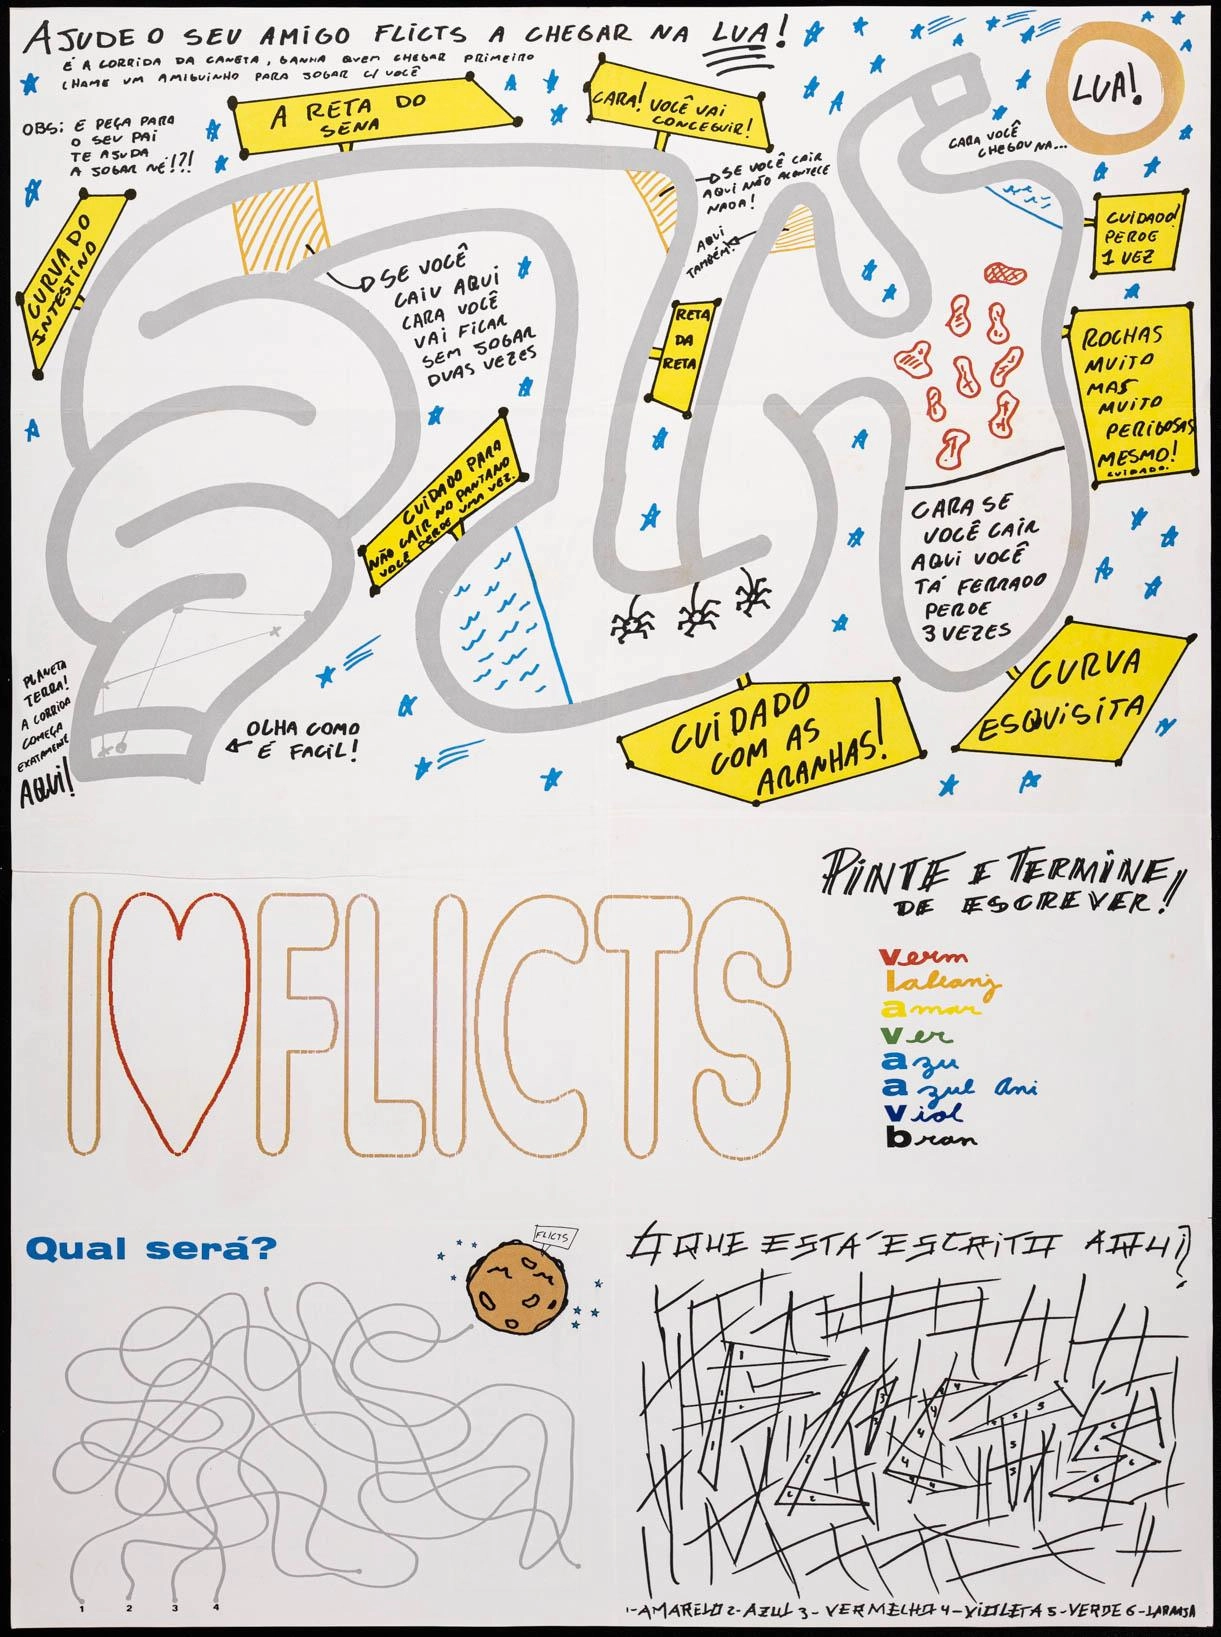 AJUDE O SEU AMIGO FLICTS A CHEGAR NA LUA!
É A CORRIDA DA CANETA, GANHA QUEM CHEGAR PRIMEIRO
CHAME UM AMIGUINHO PARA JOGAR C/ VOCÊ
OBS: E PEÇA PARA
O SEU PAI
TE AJUDA
A JOGAR NÉ!?!
A RETA DO
SENA
CARA! VOCÊ VAI
CONCEGUIR!
LUA!
CARA VOCÊ
CHEGOU NA...
SE VOCÊ CAIR
AQUI NÃO ACONTECE
NADA!
AQUI
TAMBÉM!
CURVA DO
INTESTINO
CUIDADO!
PERDE
1 VEZ
SE VOCÊ
CAIU AQUI
CARA VOCÊ
VAI FICAR
SEM JOGAR
DUAS VEZES
RETA
DA
RETA
ROCHAS
MUITO
MAS
MUITO
PERIGOSAS
MESMO!
CUIDADO.
CUIDADO PARA
NÃO CAIR NO PANTANO
VOCÊ PERDE UMA VEZ.
CARA SE
VOCÊ CAIR
AQUI VOCÊ
TÁ FERRADO
PERDE
3 VEZES
PLANETA
TERRA!
A CORRIDA
COMEÇA
EXATAMENTE
AQUI!
OLHA COMO
É FACIL!
CUIDADO
COM AS
ARANHAS!
CURVA
ESQUISITA
PINTE E TERMINE
DE ESCREVER!
I FLICTS
verm
laranj
amar
ver
azu
azul ani
viol
bran
Qual será?
FLICTS
1 2 3 4
O QUE ESTÁ ESCRITO AQUI?
1-AMARELO 2-AZUL 3-VERMELHO 4-VIOLETA 5-VERDE 6-LARANJA